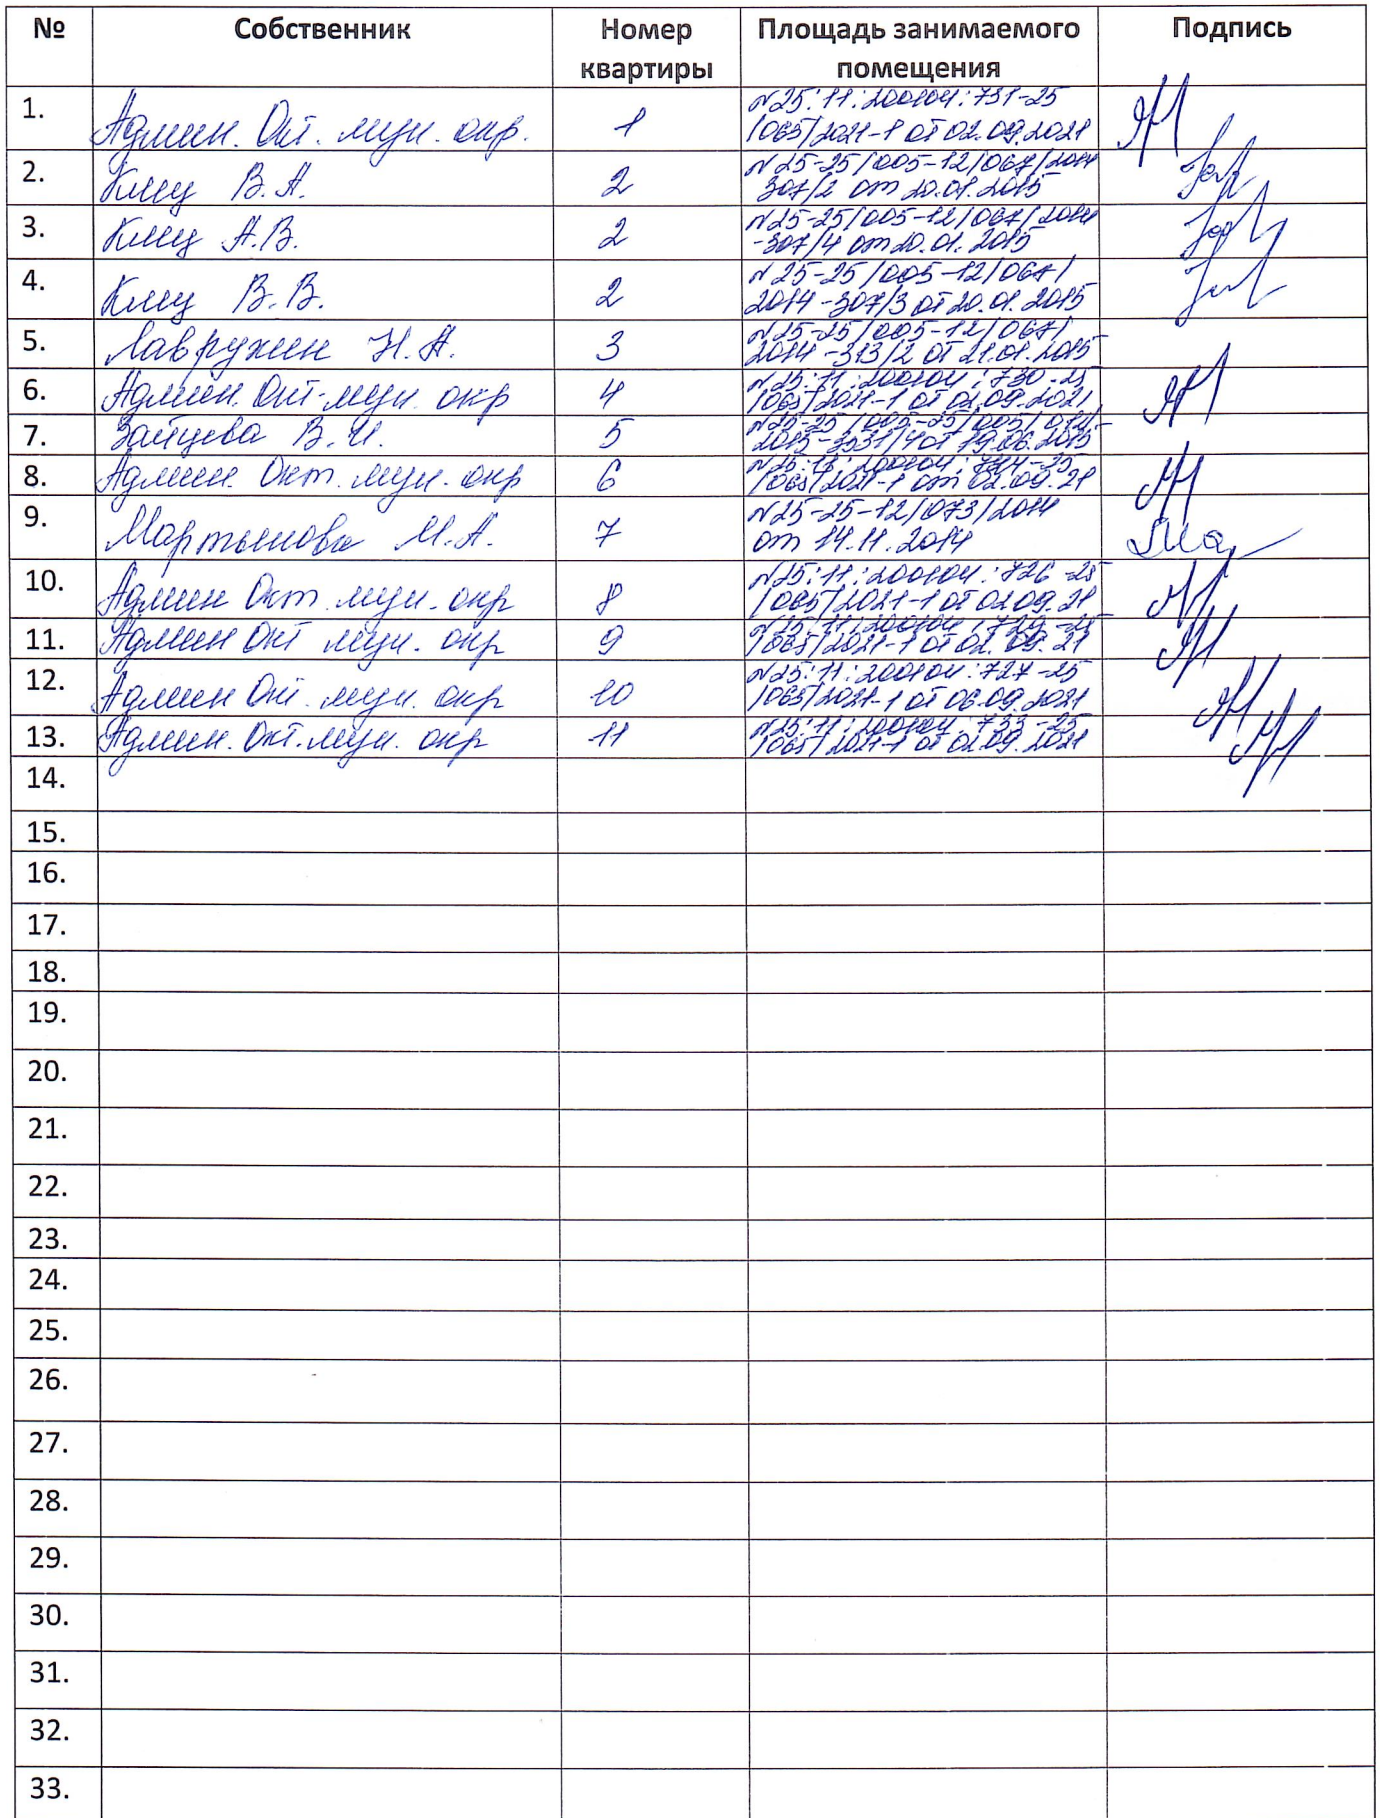 № Собственник Номер квартиры Площадь занимаемого помещения Подпись
1. Админ. Окт. мун. окр. 1 №25:11:200104:731-25
/065/2021-1 от 02.09.2021
2. Клец В.А. 2 №25-25/005-12/067/2014
307/2 от 20.01.2015
3. Клец А.В. 2 №25-25/005-12/067/2014
-307/4 от 20.01.2015
4. Клец В.В. 2 №25-25/005-12/067/
2014-307/3 от 20.01.2015
5. Лаврухин Н.А. 3 №25-25/005-12/067/
2014-313/2 от 21.01.2015
6. Админ. Окт. мун. окр 4 №25:11:200104:730-25
/065/2021-1 от 02.09.2021
7. Зайцева В.И. 5 №25-25/005-25/005/012/
2015-3531/4 от 19.06.2015
8. Админ. Окт. мун. окр 6 №25:11:200104:
/065/2021-1 от 02.09.21
9. Мартынова М.А. 7 №25-25-12/073/2014
от 14.11.2014
10. Админ Окт. мун. окр 8 №25:11:200104:726-25
/065/2021-1 от 02.09.21
11. Админ Окт мун. окр 9 №25:11:200104:729-25
/065/2021-1 от 02.09.21
12. Админ Окт. мун. окр 10 №25:11:200104:727-25
/065/2021-1 от 06.09.2021
13. Админ. Окт. мун. окр 11 №25:11:200104:733-25
/065/2021-1 от 02.09.2021
14.
15.
16.
17.
18.
19.
20.
21.
22.
23.
24.
25.
26.
27.
28.
29.
30.
31.
32.
33.